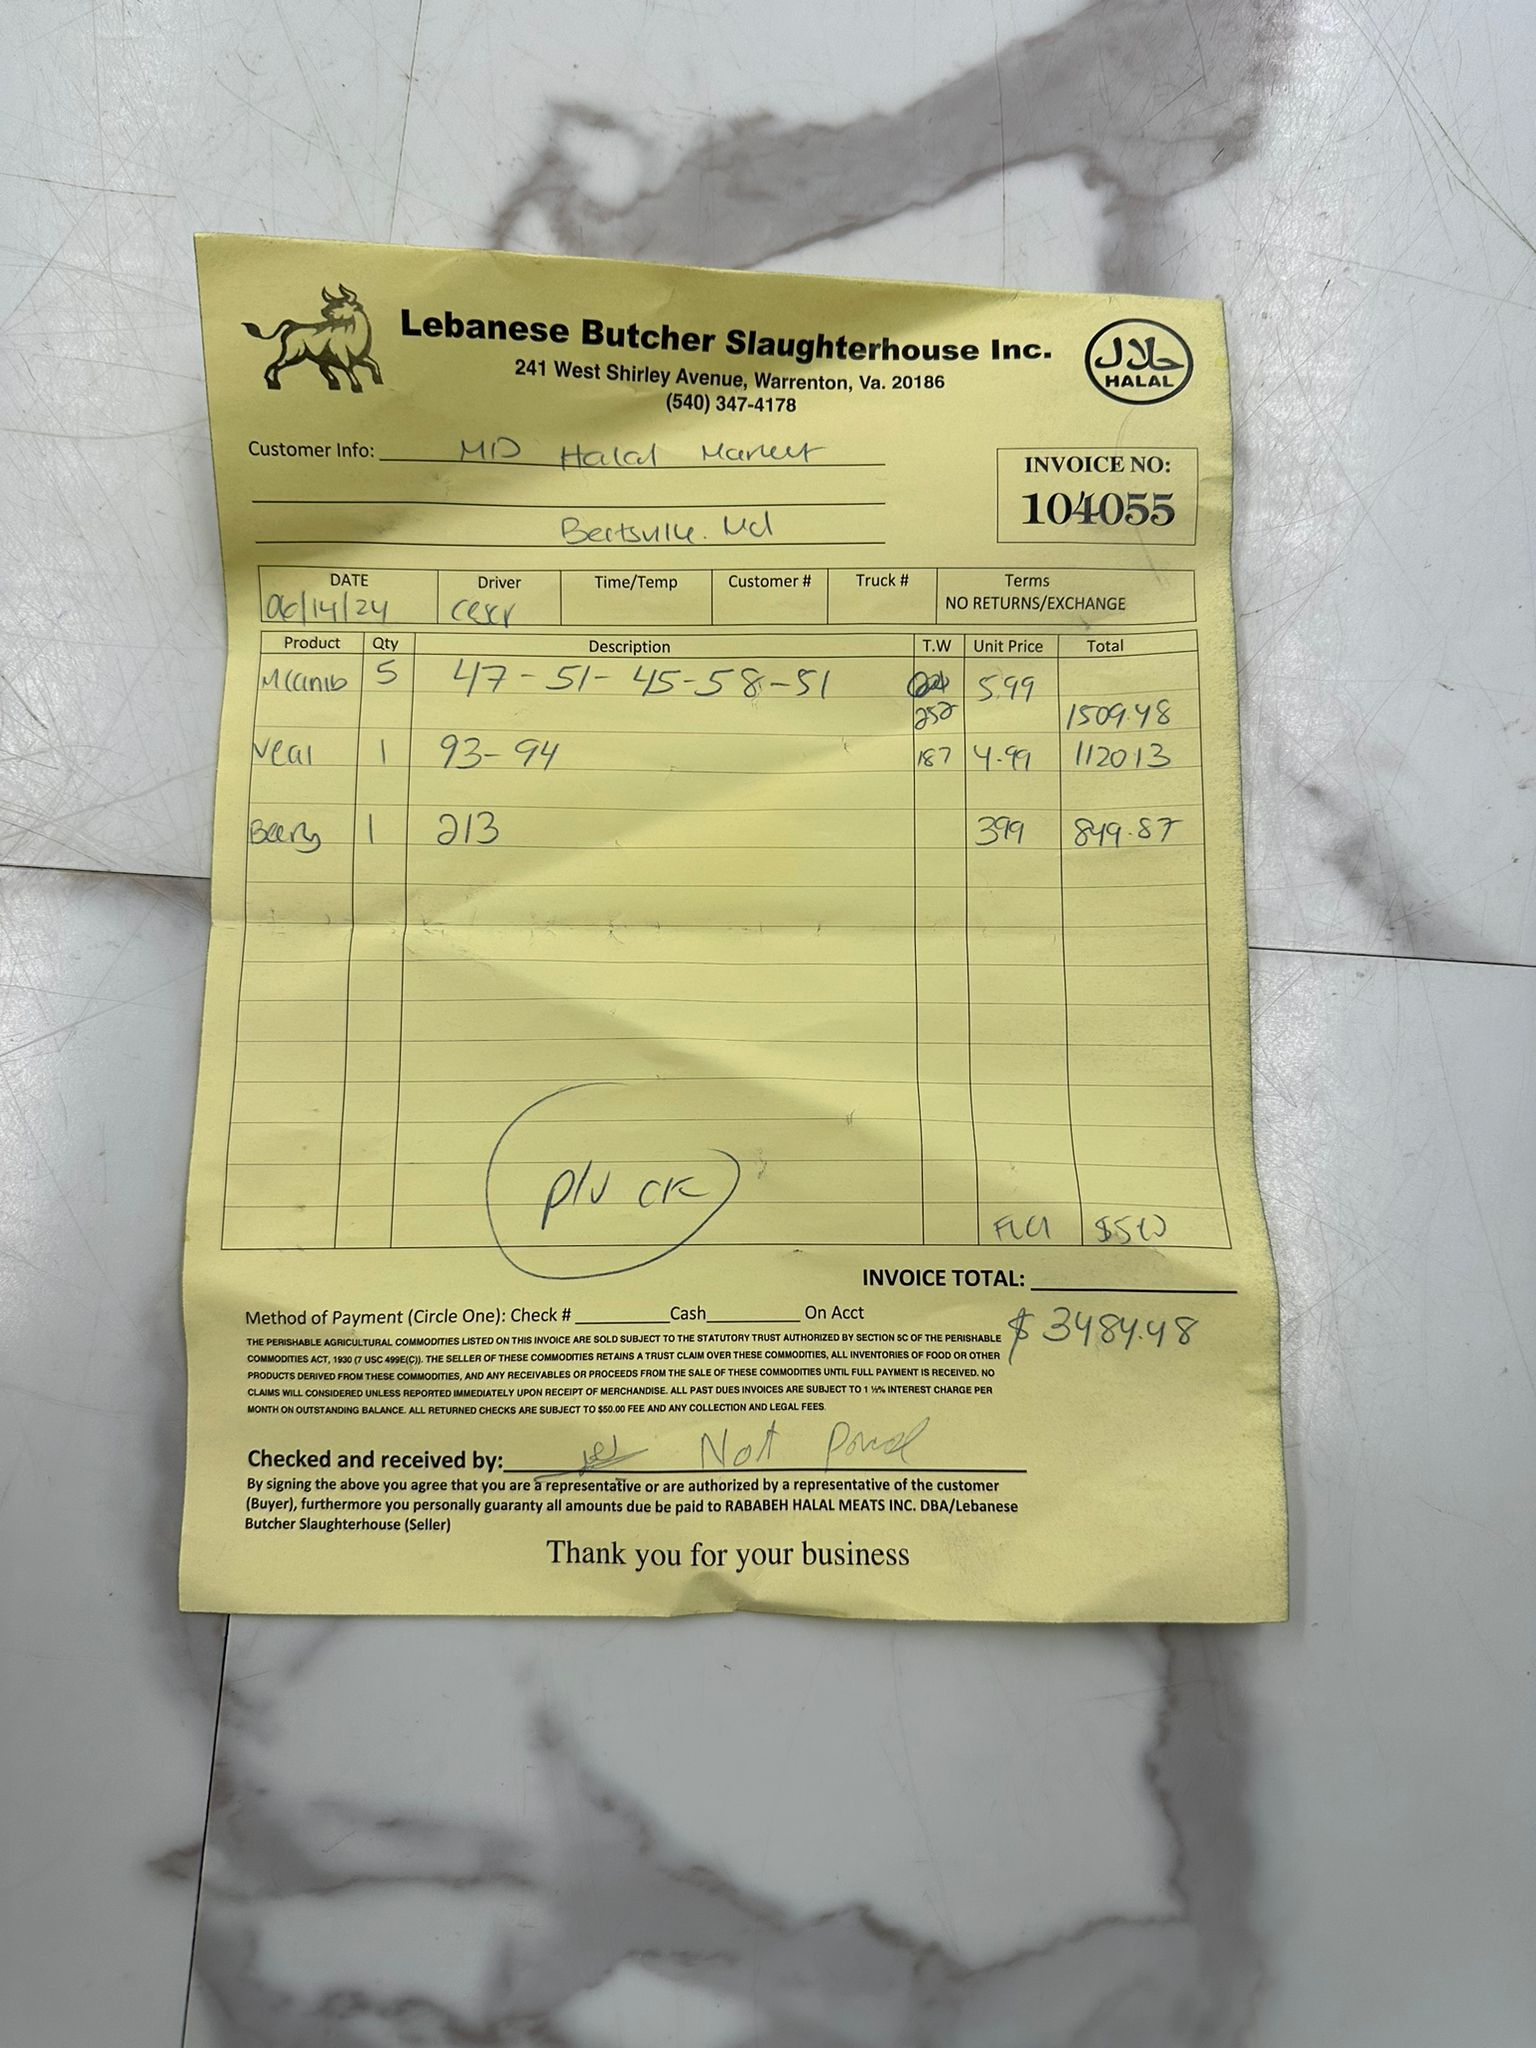 Lebanese Butcher Slaughterhouse Inc.
241 West Shirley Avenue, Warrenton, Va. 20186
(540) 347-4178
حلال
HALAL
Customer Info: MD Halal Market
INVOICE NO:
104055
Beltsville. Md
DATE Driver Time/Temp Customer # Truck # Terms
06/14/24 NO RETURNS/EXCHANGE
Product Qty Description T.W Unit Price Total
5 47-51-45-58-51 5.99
252 1509.48
Veal 1 93-94 187 4.99 112013
1 213 399 849.87
Pluck
$5
INVOICE TOTAL:
Method of Payment (Circle One): Check # Cash On Acct
$3484.48
THE PERISHABLE AGRICULTURAL COMMODITIES LISTED ON THIS INVOICE ARE SOLD SUBJECT TO THE STATUTORY TRUST AUTHORIZED BY SECTION 5C OF THE PERISHABLE
COMMODITIES ACT, 1930 (7 USC 499E(C)). THE SELLER OF THESE COMMODITIES RETAINS A TRUST CLAIM OVER THESE COMMODITIES, ALL INVENTORIES OF FOOD OR OTHER
PRODUCTS DERIVED FROM THESE COMMODITIES, AND ANY RECEIVABLES OR PROCEEDS FROM THE SALE OF THESE COMMODITIES UNTIL FULL PAYMENT IS RECEIVED. NO
CLAIMS WILL CONSIDERED UNLESS REPORTED IMMEDIATELY UPON RECEIPT OF MERCHANDISE. ALL PAST DUES INVOICES ARE SUBJECT TO 1 ½% INTEREST CHARGE PER
MONTH ON OUTSTANDING BALANCE. ALL RETURNED CHECKS ARE SUBJECT TO $50.00 FEE AND ANY COLLECTION AND LEGAL FEES.
Checked and received by: Not
By signing the above you agree that you are a representative or are authorized by a representative of the customer
(Buyer), furthermore you personally guaranty all amounts due be paid to RABABEH HALAL MEATS INC. DBA/Lebanese
Butcher Slaughterhouse (Seller)
Thank you for your business